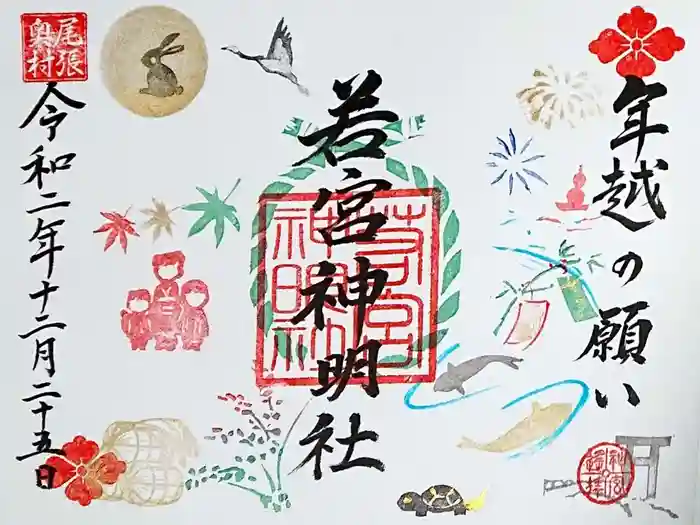 年越の願い
若宮神明社
若宮神明社
尾張
奥村
令和二年十二月二十五日